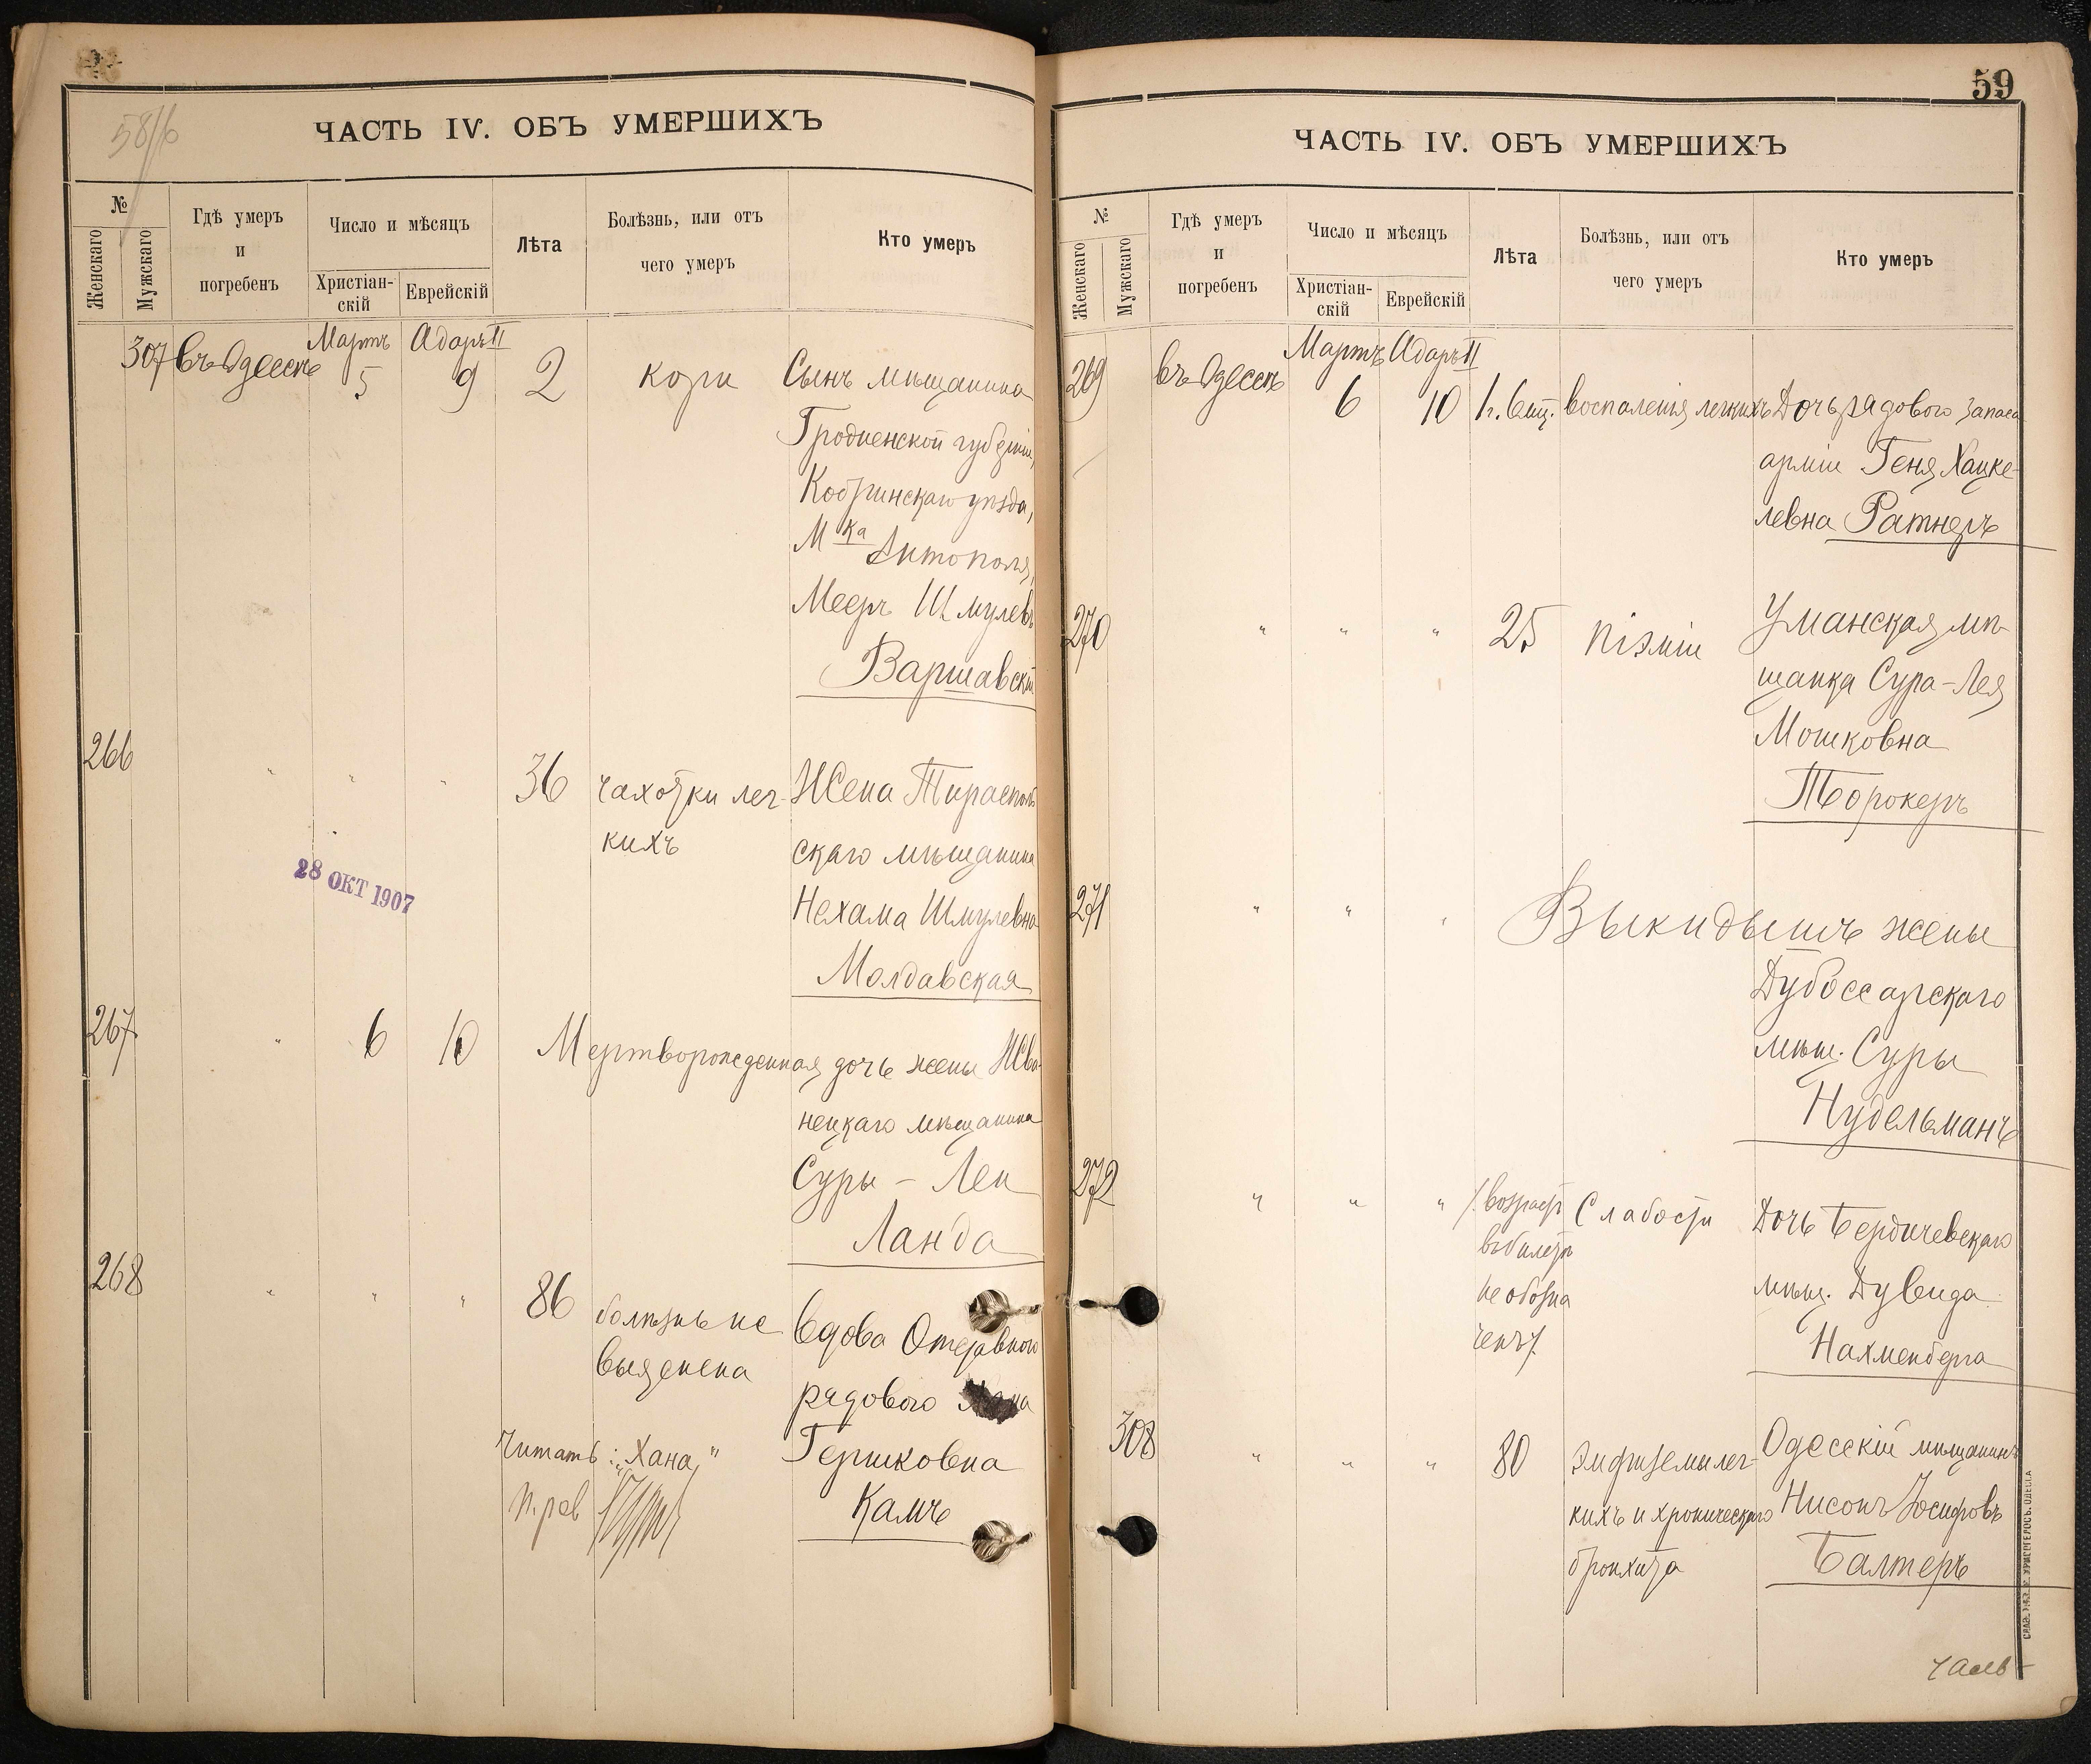 58/б
ЧАСТЬ IV. ОБЪ УМЕРШИХЪ
№
Женскаго
Мужскаго
Гдѣ умеръ
и
погребенъ
Число и мѣсяцъ
Христіан-
скій
Еврейскій
Лѣта
Болѣзнь, или отъ
чего умеръ
Кто умеръ
Мартъ Адаръ II
307 въ Одессѣ 5 9 2 кори Сынъ мѣщанина
Гродненской губерніи,
Кобринскаго уѣзда,
М ка Антополя,
Мееръ Шмулевъ
Варшавскій
266 " " " 36 чахотки лег- Жена Тирасполь
кихъ скаго мѣщанина
28 ОКТ 1907
Нехама Шмулевна
Молдавская
267 " 6 10 Мертворожденная дочь жены Жва-
нецкаго мѣщанина
Суры - Леи
Ланда
268 " " " 86 болѣзнь не Вдова Отставного
выяснена рядового
Читать: „Хана" Гершковна
Камъ
59
ЧАСТЬ IV. ОБЪ УМЕРШИХЪ
№
Женскаго
Мужскаго
Гдѣ умеръ
и
погребенъ
Число и мѣсяцъ
Христіан-
скій
Еврейскій
Лѣта
Болѣзнь, или отъ
чего умеръ
Кто умеръ
Мартъ Адаръ II
269 въ Одессѣ 6 10 1 г. 6 мц. воспаленія легкихъ Дочь рядового запаса
арміи Геня Хацке-
левна Ратнеръ
270 " " " 25 піэміи Уманская мѣ-
щанка Сура-Лея
Мошковна
Торокеръ
271 " " " Выкидышъ жены
Дубоссарскаго
мѣщ. Суры
Нудельманъ
272 " " " /возрастъ Слабости Дочь Бердичевскаго
въ билетѣ
не обозна мѣщ. Дувида
ченъ/. Нахменберга
308 " " " 80 эмфиземы лег- Одесскій мѣщанинъ
кихъ и хроническаго Нисонъ Іосифовъ
бронхита Балтеръ